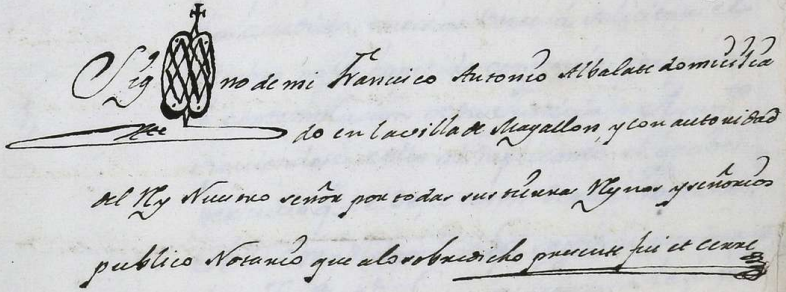 Sig no de mi Francisco Antonio Albalate domicilia
do en la villa de Magallon, y con autoridad
del Rey Nuestro señor por todas sus tierras Reynos y señorios
publico Notario que a lo sobredicho presente fui et cerre